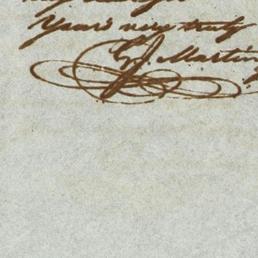 Yours very truly
G J Martin